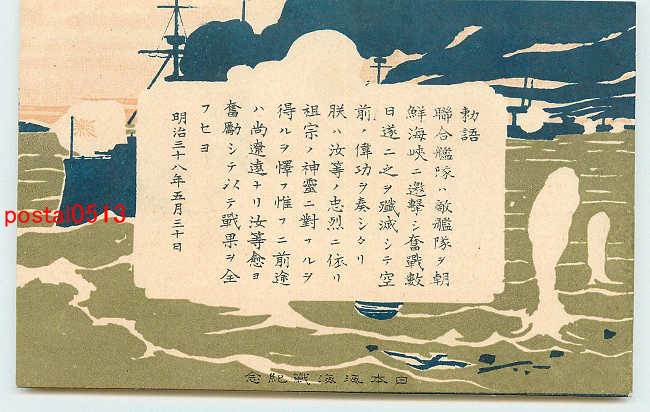 勅語
聯合艦隊ハ敵艦隊ヲ朝
鮮海峡ニ邀撃シ奮戰數
日遂ニ之ヲ殲滅シテ空
前ノ偉功ヲ奏シタリ
朕ハ汝等ノ忠烈ニ依リ
祖宗ノ神靈ニ對フルヲ
得ルヲ懌フ惟フニ前途
ハ尚遼遠ナリ汝等愈ヨ
奮勵シテ以テ戰果ヲ全
フセヨ
明治三十八年五月三十日
念紀戰海海本日
postal0513